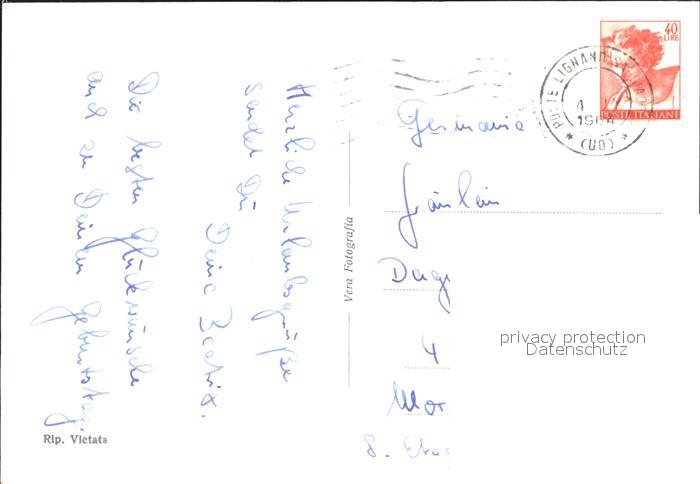 Herzliche Urlaubsgrüße
sendet Dir
Deine Beatrix.
Die besten Glückwünsche
auch zu Deinem Geburtstag.
Rip. Vietata
Vera Fotografia
40
LIRE
POSTE ITALIANE
POSTE LIGNANO
4
1964
* (UD) *
Germania
Fräulein
Dag
4
Mor
8. Etag
privacy protection
Datenschutz